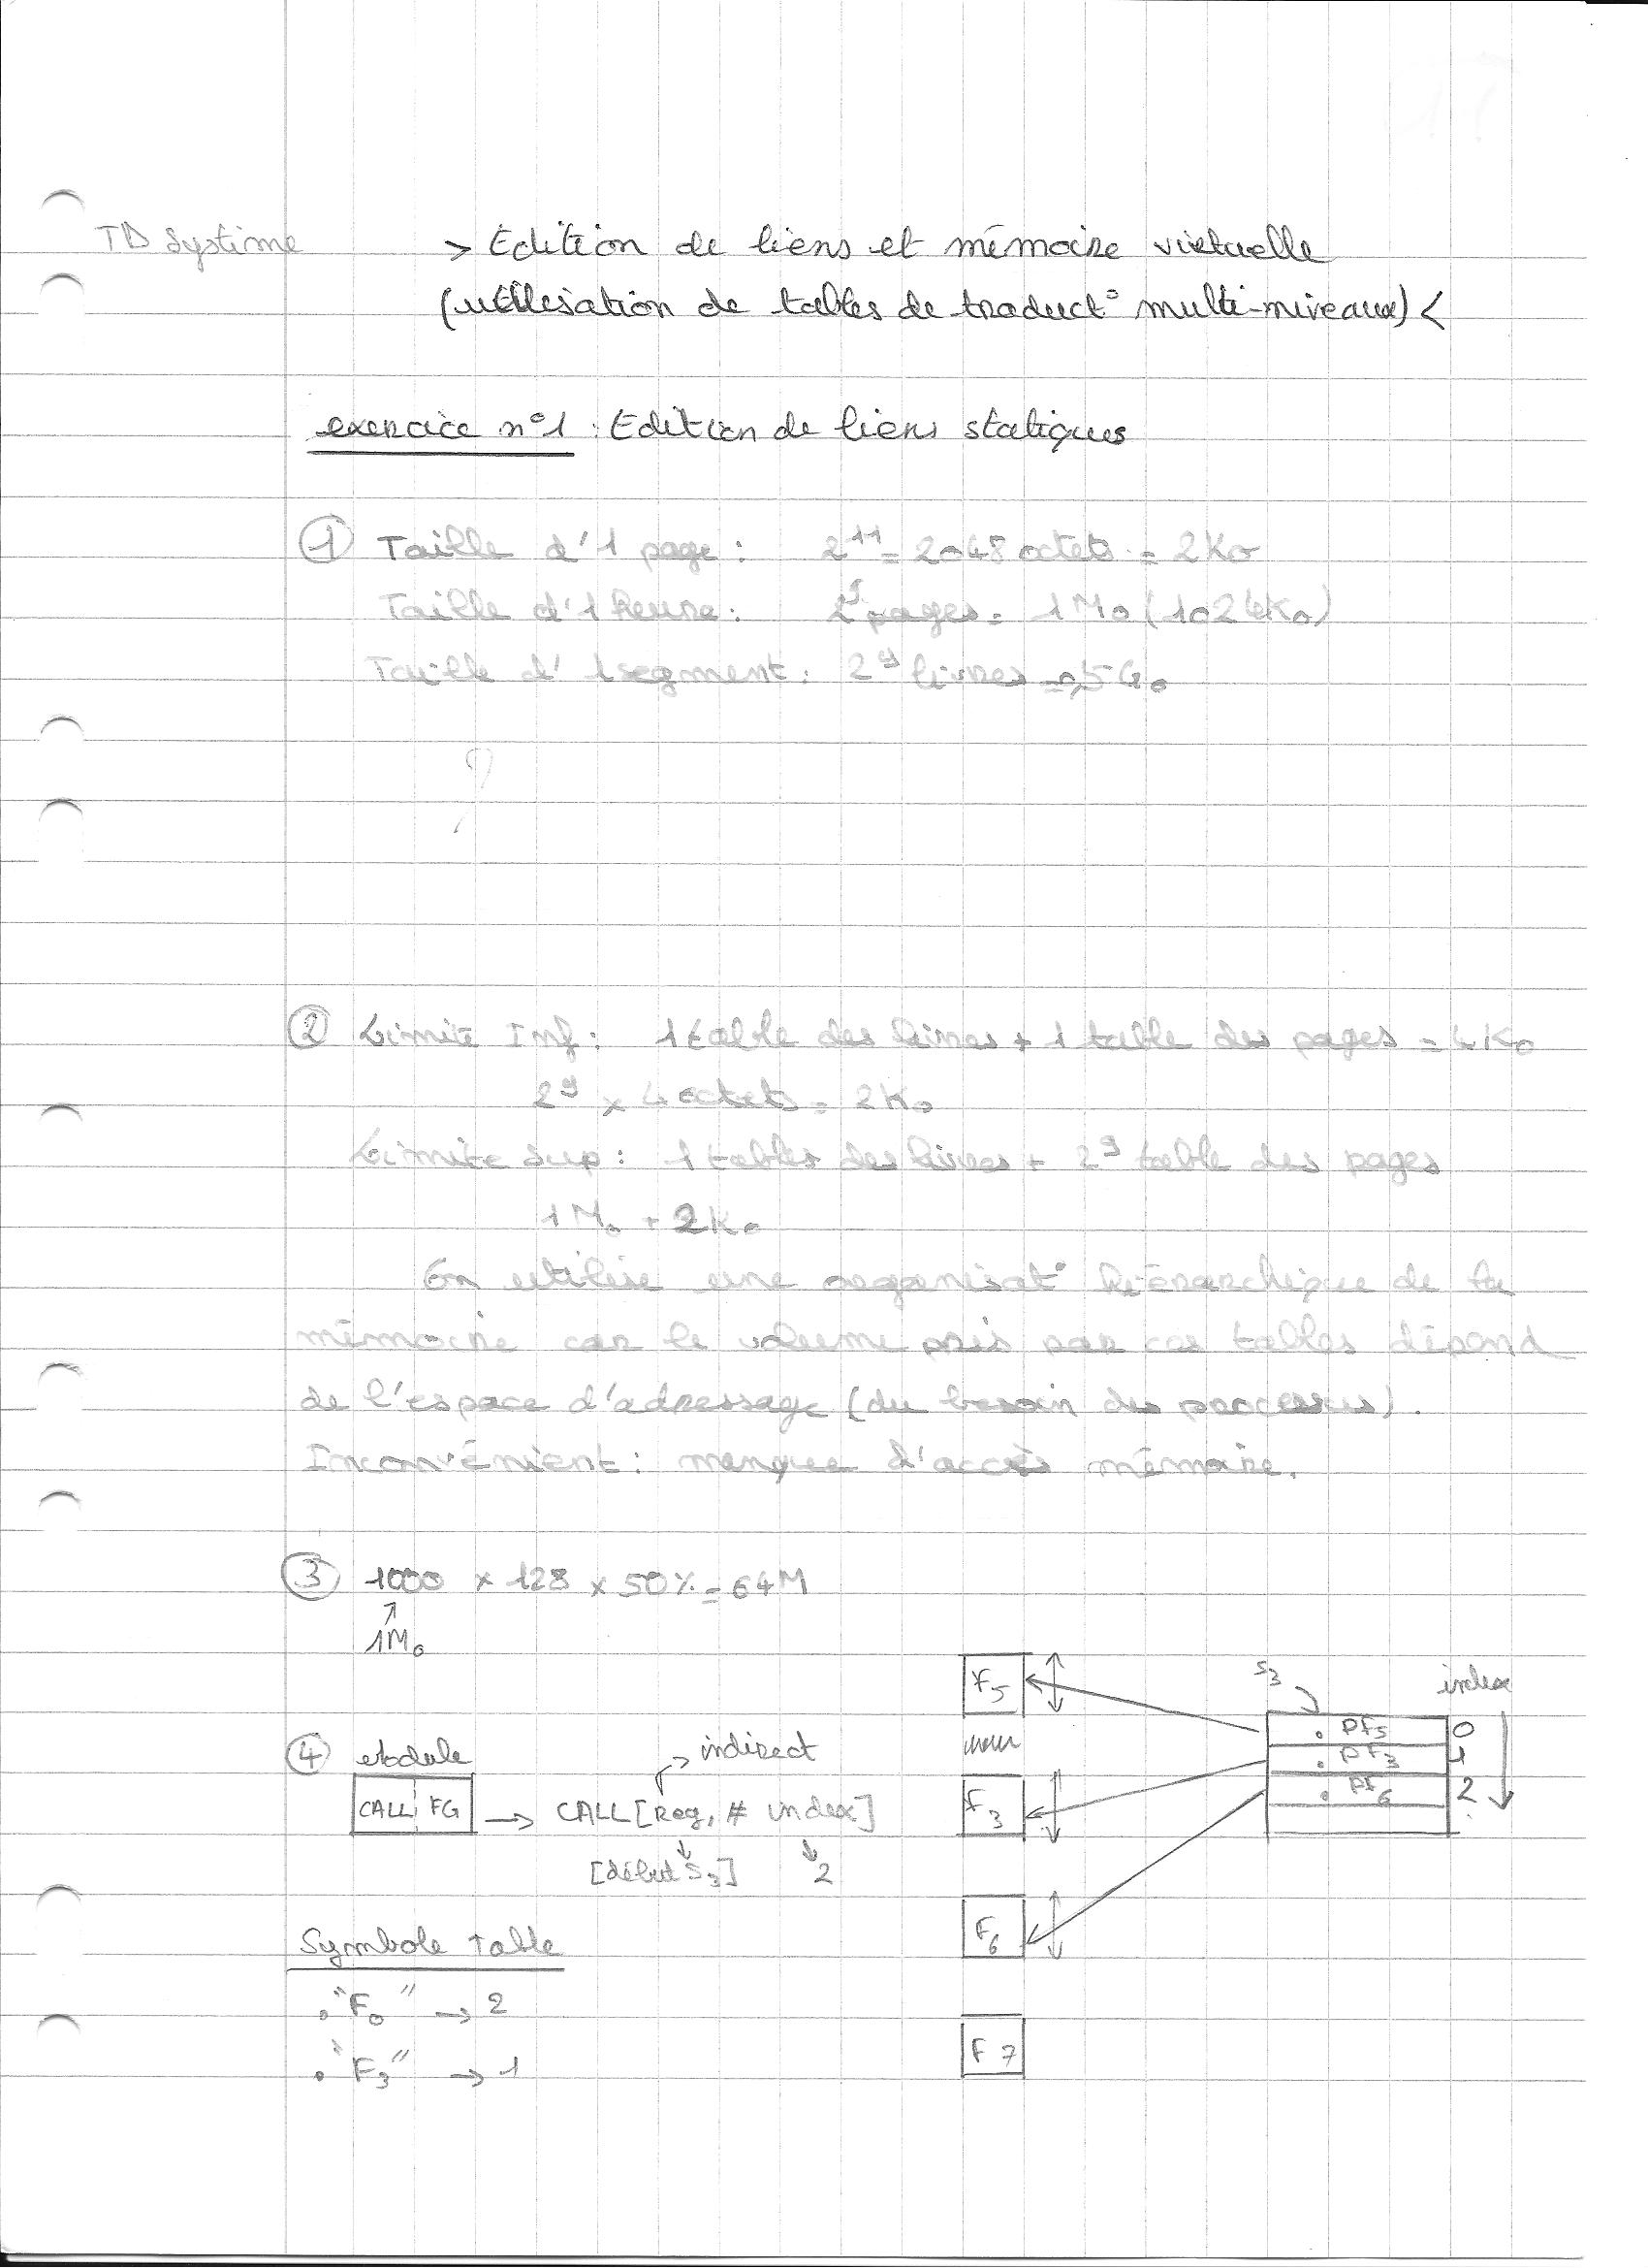 TD Système
> Edition de liens et mémoire virtuelle
(utilisation de tables de traduct° multi-niveaux) <
exercice n°1 : Edition de liens statiques
① Taille d'1 page : 2^11 = 2048 octets = 2Ko
Taille d'1 livre : 2^9 pages = 1 Mo (1024Ko)
Taille d'1 segment : 2^9 livres = 0,5 Go
② Limite Inf : 1 table des livres + 1 table des pages = 4Ko
2^9 x 4 octets = 2Ko
Limite Sup : 1 tables des livres + 2^9 table des pages
1 Mo + 2Ko
On utilise une organisat° hiérarchique de la
mémoire car le volume pris par ces tables dépend
de l'espace d'adressage (du besoin des processus).
Inconvénient : manque d'accès mémoire.
③ 1000 x 128 x 50% = 64M
1Mo
④ Module
CALL FG → CALL [Reg, # index]
indirect
[début S3] 2
Symbole Table
• "F0" → 2
• "F3" → 1
F5
F3
F6
F7
S3
index
• PF5 0
• PF3 1
• PF6 2